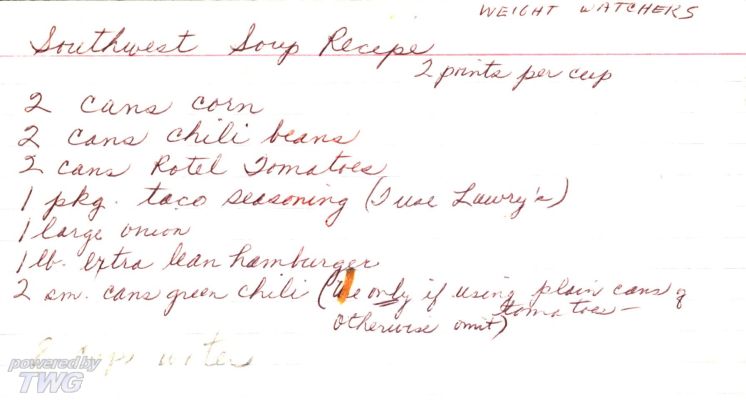 WEIGHT WATCHERS
Southwest Soup Recepe
2 points per cup
2 cans corn
2 cans chili beans
2 cans Rotel Tomatoes
1 pkg. taco seasoning (I use Lawry's)
1 large onion
1 lb. extra lean hamburger
2 sm. cans green chili (Use only if using plain cans of
tomatoes –
otherwise omit)
water
powered by
TWG